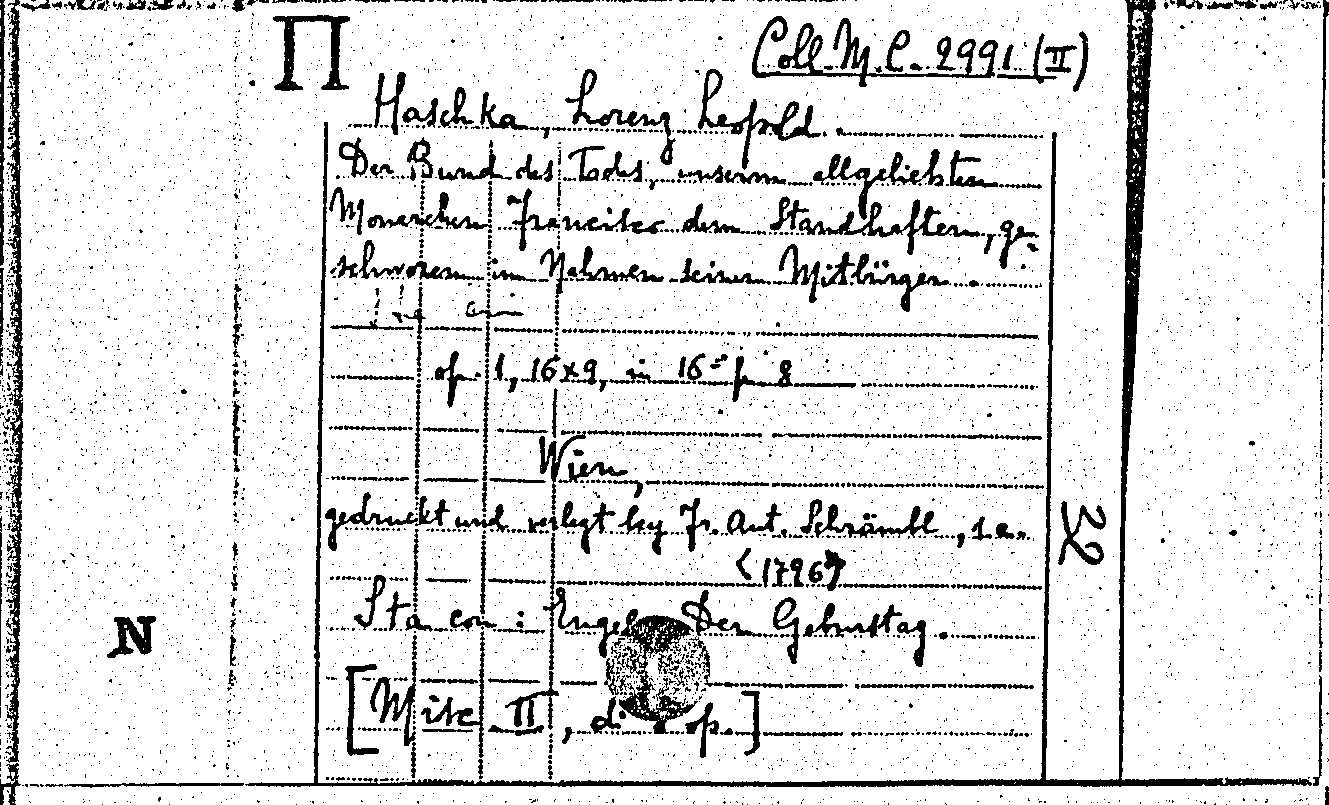 Π
Coll. M. C. 2991 (II)
Haschka, Lorenz Leopold.
Der Bund des Todes, unserm allgeliebten
Monarchen Francisec dem Standhaften, ge-
schworen im Nahmen seiner Mitbürger.
op. 1, 16x9, in 16° p. 8
Wien,
gedruckt und verlegt bey Fr. Ant. Schrämbl, s.a.
<1796>
Sta con: Engel Der Geburstag.
[Misc II, di op.]
32
N